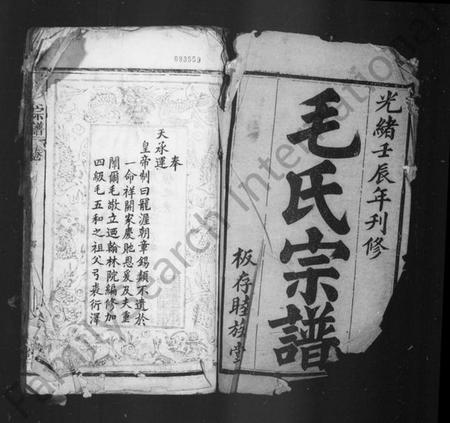 光緒壬辰年刊修
毛氏宗譜
板存睦族堂
093559
奉
天承運
皇帝制曰寵渥朝章錫類不遺於
一命祥開家慶貤恩爰及夫重
闈爾毛敬立迺翰林院編修加
四級毛五和之祖父弓裘衍澤
宗譜
FamilySearch International